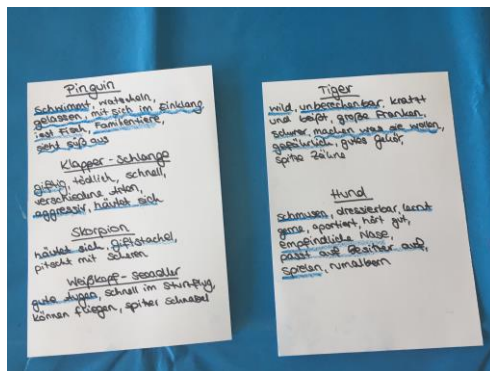 Pinguin
Schwimmt, watscheln,
gelassen, mit sich im Einklang
isst Fisch, Familientiere,
sieht süß aus
Klapper-Schlange
giftig, tödlich, schnell,
verschiedene Arten,
aggressiv, häutet sich
Skorpion
häutet sich, Giftstachel,
pitscht mit Scheren
Weißkopf-Seeadler
gute Augen, schnell im Sturzflug,
können fliegen, spitzer Schnabel
Tiger
wild, unberechenbar, kratzt
und beißt, große Pranken,
schwer, machen was sie wollen,
gefährlich, gutes Gehör,
spitze Zähne
Hund
schmusen, dressierbar, lernt
gerne, aportiert, hört gut,
empfindliche Nase,
passt auf Besitzer auf,
spielen, rumalbern